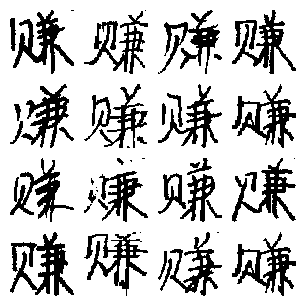 赚赚赚赚
赚赚赚赚
赚赚赚赚
赚赚赚赚